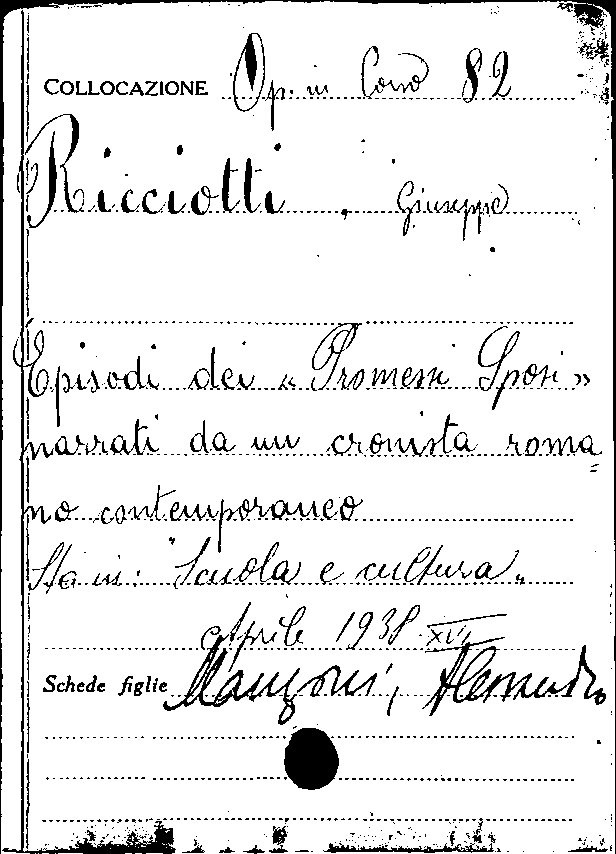 COLLOCAZIONE Op. in Corso 82
Ricciotti, Giuseppe
Episodi dei « Promessi Sposi »
narrati da un cronista roma=
no contemporaneo
Sta in: "Scuola e cultura"
Aprile 1938 XVI
Schede figlie Manzoni, Alessandro